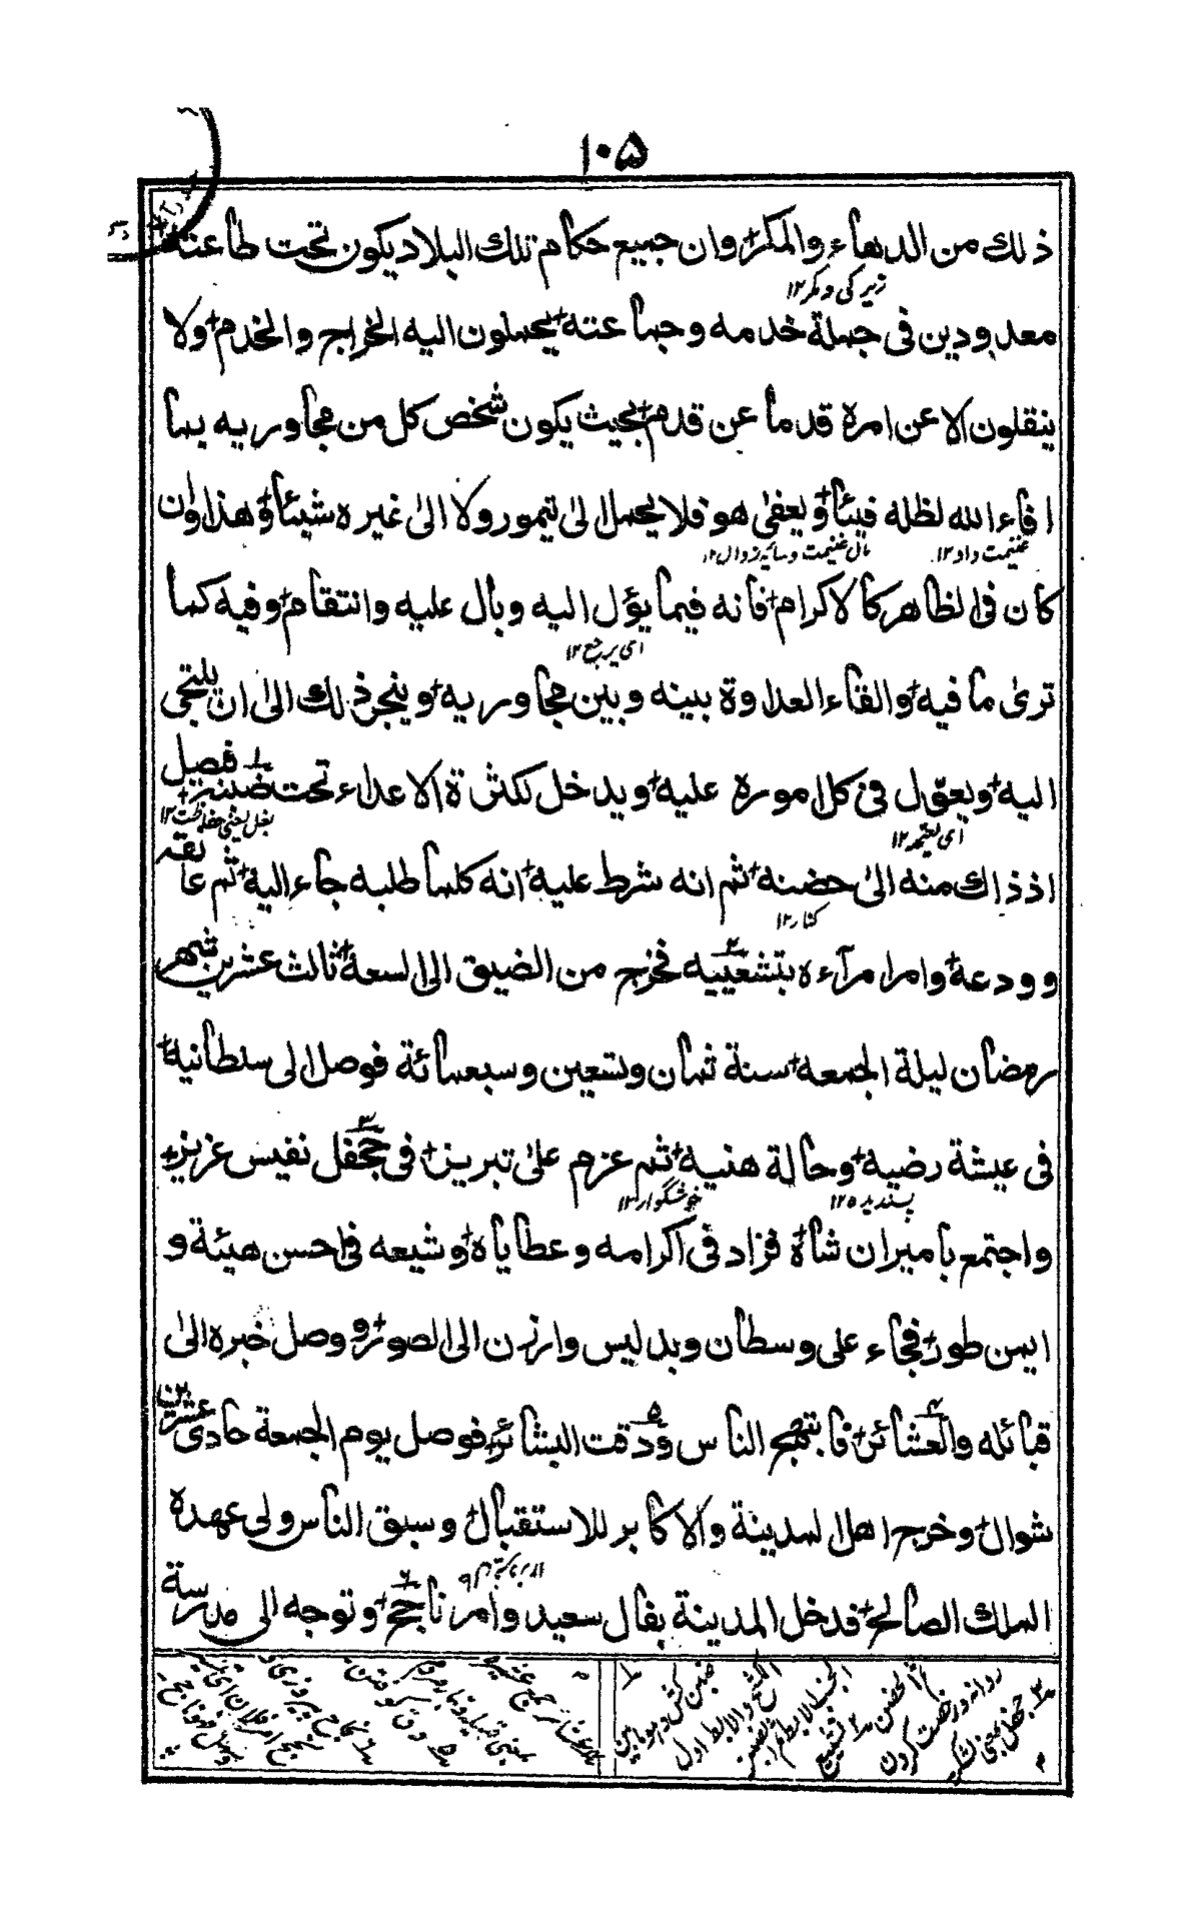 ۱۰۵
ذلك من الدهاء والمكر وان جميع حكام تلك البلاد يكون تحت طاعته
زیرکی و مکر۱۲
معدودين فى جملة خدمه وجماعته يحملون اليه الخراج والخدم ولا
ينقلون الا عن امرة قدما عن قدم بحيث يكون شخص كل من مجاوريه بما
افاء الله لظله فيئا ويعفى هو فلا يحمل الى تيمور ولا الى غيره شيئا وهذا وان
غنیمت داد۱۲ مال غنیمت وسایه زوال۱۲
كان فى الظاهر كالاكرام فانه فيما يؤل اليه وبال عليه وانتقام وفيه كما
ای یرجع۱۲
ترى ما فيه والقاء العداوة بينه وبين مجاوريه وينجر ذلك الى ان يلتجى
اليه ويعول فى كل اموره عليه ويدخل لكثرة الاعداء تحت ضبنه فصل
ای یعتمد۱۲ بغل یعنی حفاظت۱۲
اذ ذاك منه الى حضنه ثم انه شرط عليه انه كلما طلبه جاء اليه ثم عانقه
كنار۱۲
وودعه وامر امرآءه بتشييعه فخرج من الضيق الى السعة ثالث عشرين شهر
رمضان ليلة الجمعه سنة ثمان وتسعين وسبعمائة فوصل الى سلطانيه
فى عيشة رضيه وحالة هنيه ثم عزم على تبريز فى جحفل نفيس عزيز
پسندیده۱۲ خوشگوار۱۲
واجتمع باميران شاه فزاد فى اكرامه وعطاياه وشيعه فى احسن هيئة و
ايمن طور فجاء على وسطان وبدليس وارزن الى الصور ووصل خبره الى
قبائله والعشائر فابتهج الناس ودقت البشائر فوصل يوم الجمعة حادى عشرين
شوال وخرج اهل المدينة والاكابر للاستقبال وسبق الناس ولى عهده
الملك الصالح فدخل المدينة بفال سعيد وامر ناجح وتوجه الى مدرسة